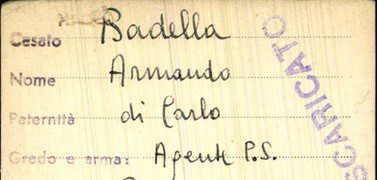 Cesato Badella
Nome Armando
Paternità di Carlo
Gredo e arma: Agente P.S.
SCARICATO